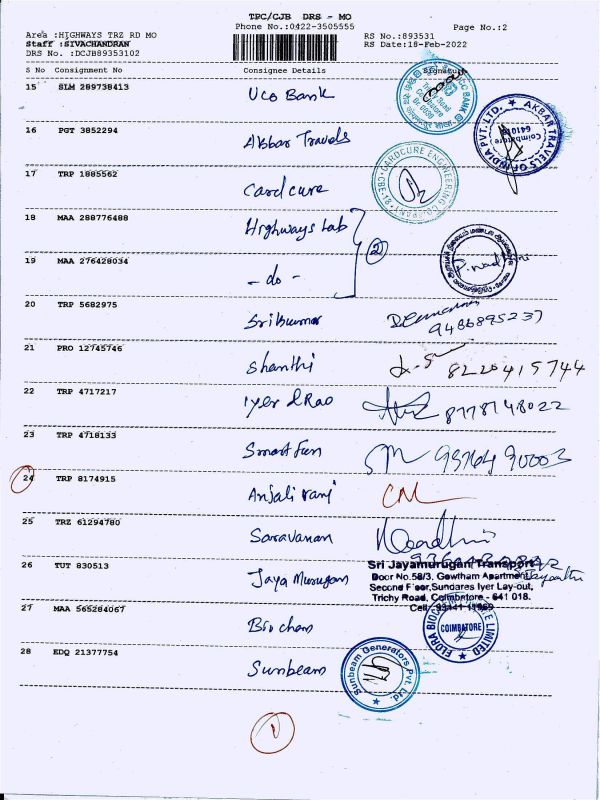 TPC/CJB DRS - MO
Phone No.:0422-3505555
Page No.:2
Area :HIGHWAYS TRZ RD MO
RS No.:893531
Staff :SIVACHANDRAN
RS Date:18-Feb-2022
DRS No. :DCJB89353102
S No Consignment Consignee Details Signature
15 SLM 289738413 Uco Bank
16 PGT 3852294 Akbar Travels
AKBAR TRAVELS OF INDIA PVT. LTD.
Coimbatore
17 TRP 1885562 Cardcure
CARDCURE ENGINEERING COMPANY CBE-18
18 MAA 288776488 Highways Lab
②
19 MAA 276428034 - do -
20 TRP 5682975 Srikumar
9486895237
21 PRO 12745746 Shanthi 8220415744
22 TRP 4717217 Iyer & Rao 8778748022
23 TRP 4718133 Smart Fun
24 TRP 8174915 Anjali rani
25 TRZ 61294780 Saravanan
26 TUT 830513 Jaya Murugan
Sri Jayamurugan Transport
Door No.58/3, Gowtham Apartment
Second Floor,Sundares Iyer Lay-out,
Trichy Road, Coimbatore - 641 018.
27 MAA 565284067 Bio chem
COIMBATORE
28 EDQ 21377754 Sunbeam
Sunbeam Generators Pvt. Ltd.
①